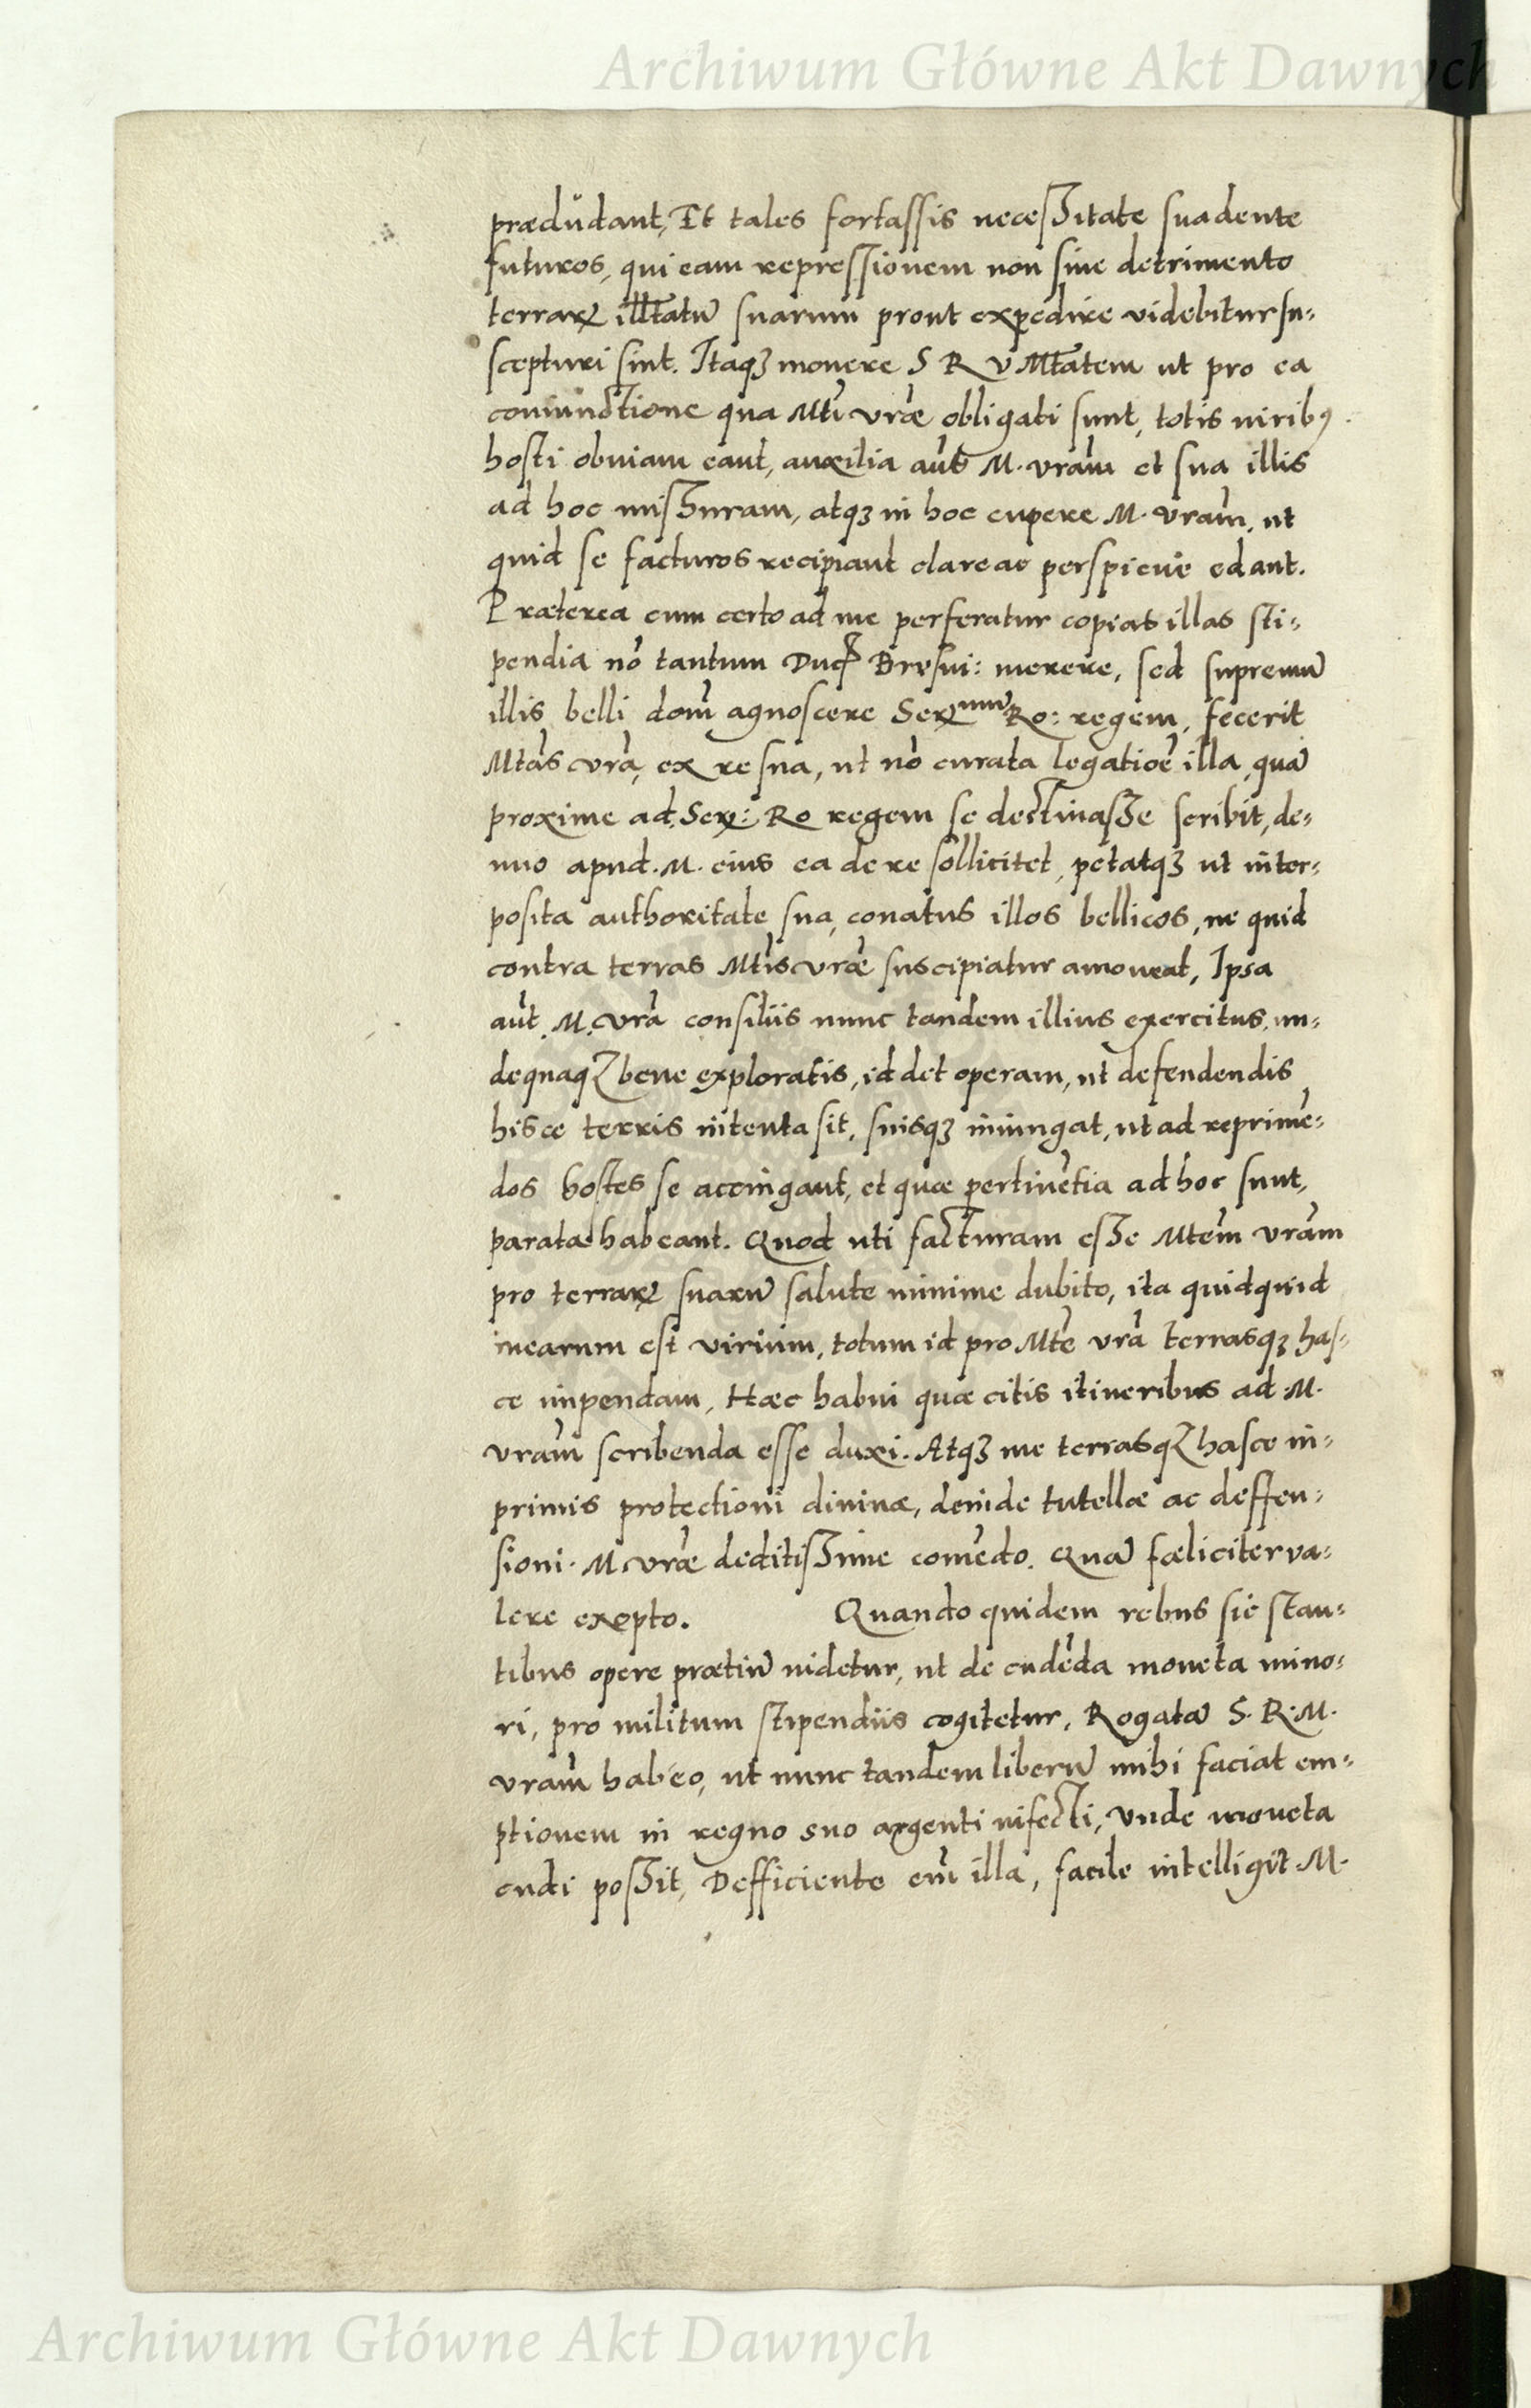 Archiwum Główne Akt Dawnych
prædudant, Et tales fortassis necessitate suadente
futuros, qui eam repressionem non sine detrimento
terrarꝝ illtatū suarum prout expedire videbitur su-
scepturi sint. Itaqꝫ monere S R V Mtatem ut pro ea
coniunctione qua Mti vrae obligati sunt, totis uiribꝰ
hosti obuiam eant, auxilia aut M. vram et sua illis
ad hoc missuram, atqꝫ in hoc cupere M. vram, ut
quid se facturos recipiant clare ac perspicue edant.
Præterea cum certo ad me perferatur copias illas sti-
pendia nō tantum Ducꝭ Bresui: merere, sed supremū
illis belli dom agnoscere Serᵐᵘᵐ Ro: regem, fecerit
Mtas vra, ex re sua, ut nō curata legatioē illa, quā
proxime ad Ser: Ro regem se destinasse scribit, de-
nuo apud. M. eius ea de re sollicitet, petatqꝫ ut inter-
posita authoritate sua, conatus illos bellicos, ne quid
contra terras Mtis vræ suscipiatur amoueat, Ipsa
aut M. vra consiliis nunc tandem illius exercitus, un-
dequaqꝫ bene exploratis, id det operam, ut defendendis
hisce terris intenta sit, suisqꝫ iniungat, ut ad reprimē-
dos hostes se accingant, et quæ pertinētia ad hoc sunt,
parata habeant. Quod uti facturam esse Mtem vram
pro terrarꝝ suarū salute minime dubito, ita quidquid
mearum est virium, totum id pro Mte vra terrasqꝫ has-
ce impendam, Hæc habui quæ citis itineribus ad M.
vram scribenda esse duxi. Atqꝫ me terrasqꝫ hasce in-
primis protectioni diuinæ, deinde tutellæ ac deffen-
sioni. M vræ deditissime comēdo. Quā fæliciter va-
lere exopto. Quando quidem rebus sic stan-
tibus opere prætiū uidetur, ut de cudēda moneta mino-
ri, pro militum stipendiis cogitetur, Rogatā S. R. M.
vram habeo, ut nunc tandem liberū mihi faciat em-
ptionem in regno suo argenti infecti, unde moneta
cudi possit, Defficiente em illa, facile intelligit M.
Archiwum Główne Akt Dawnych